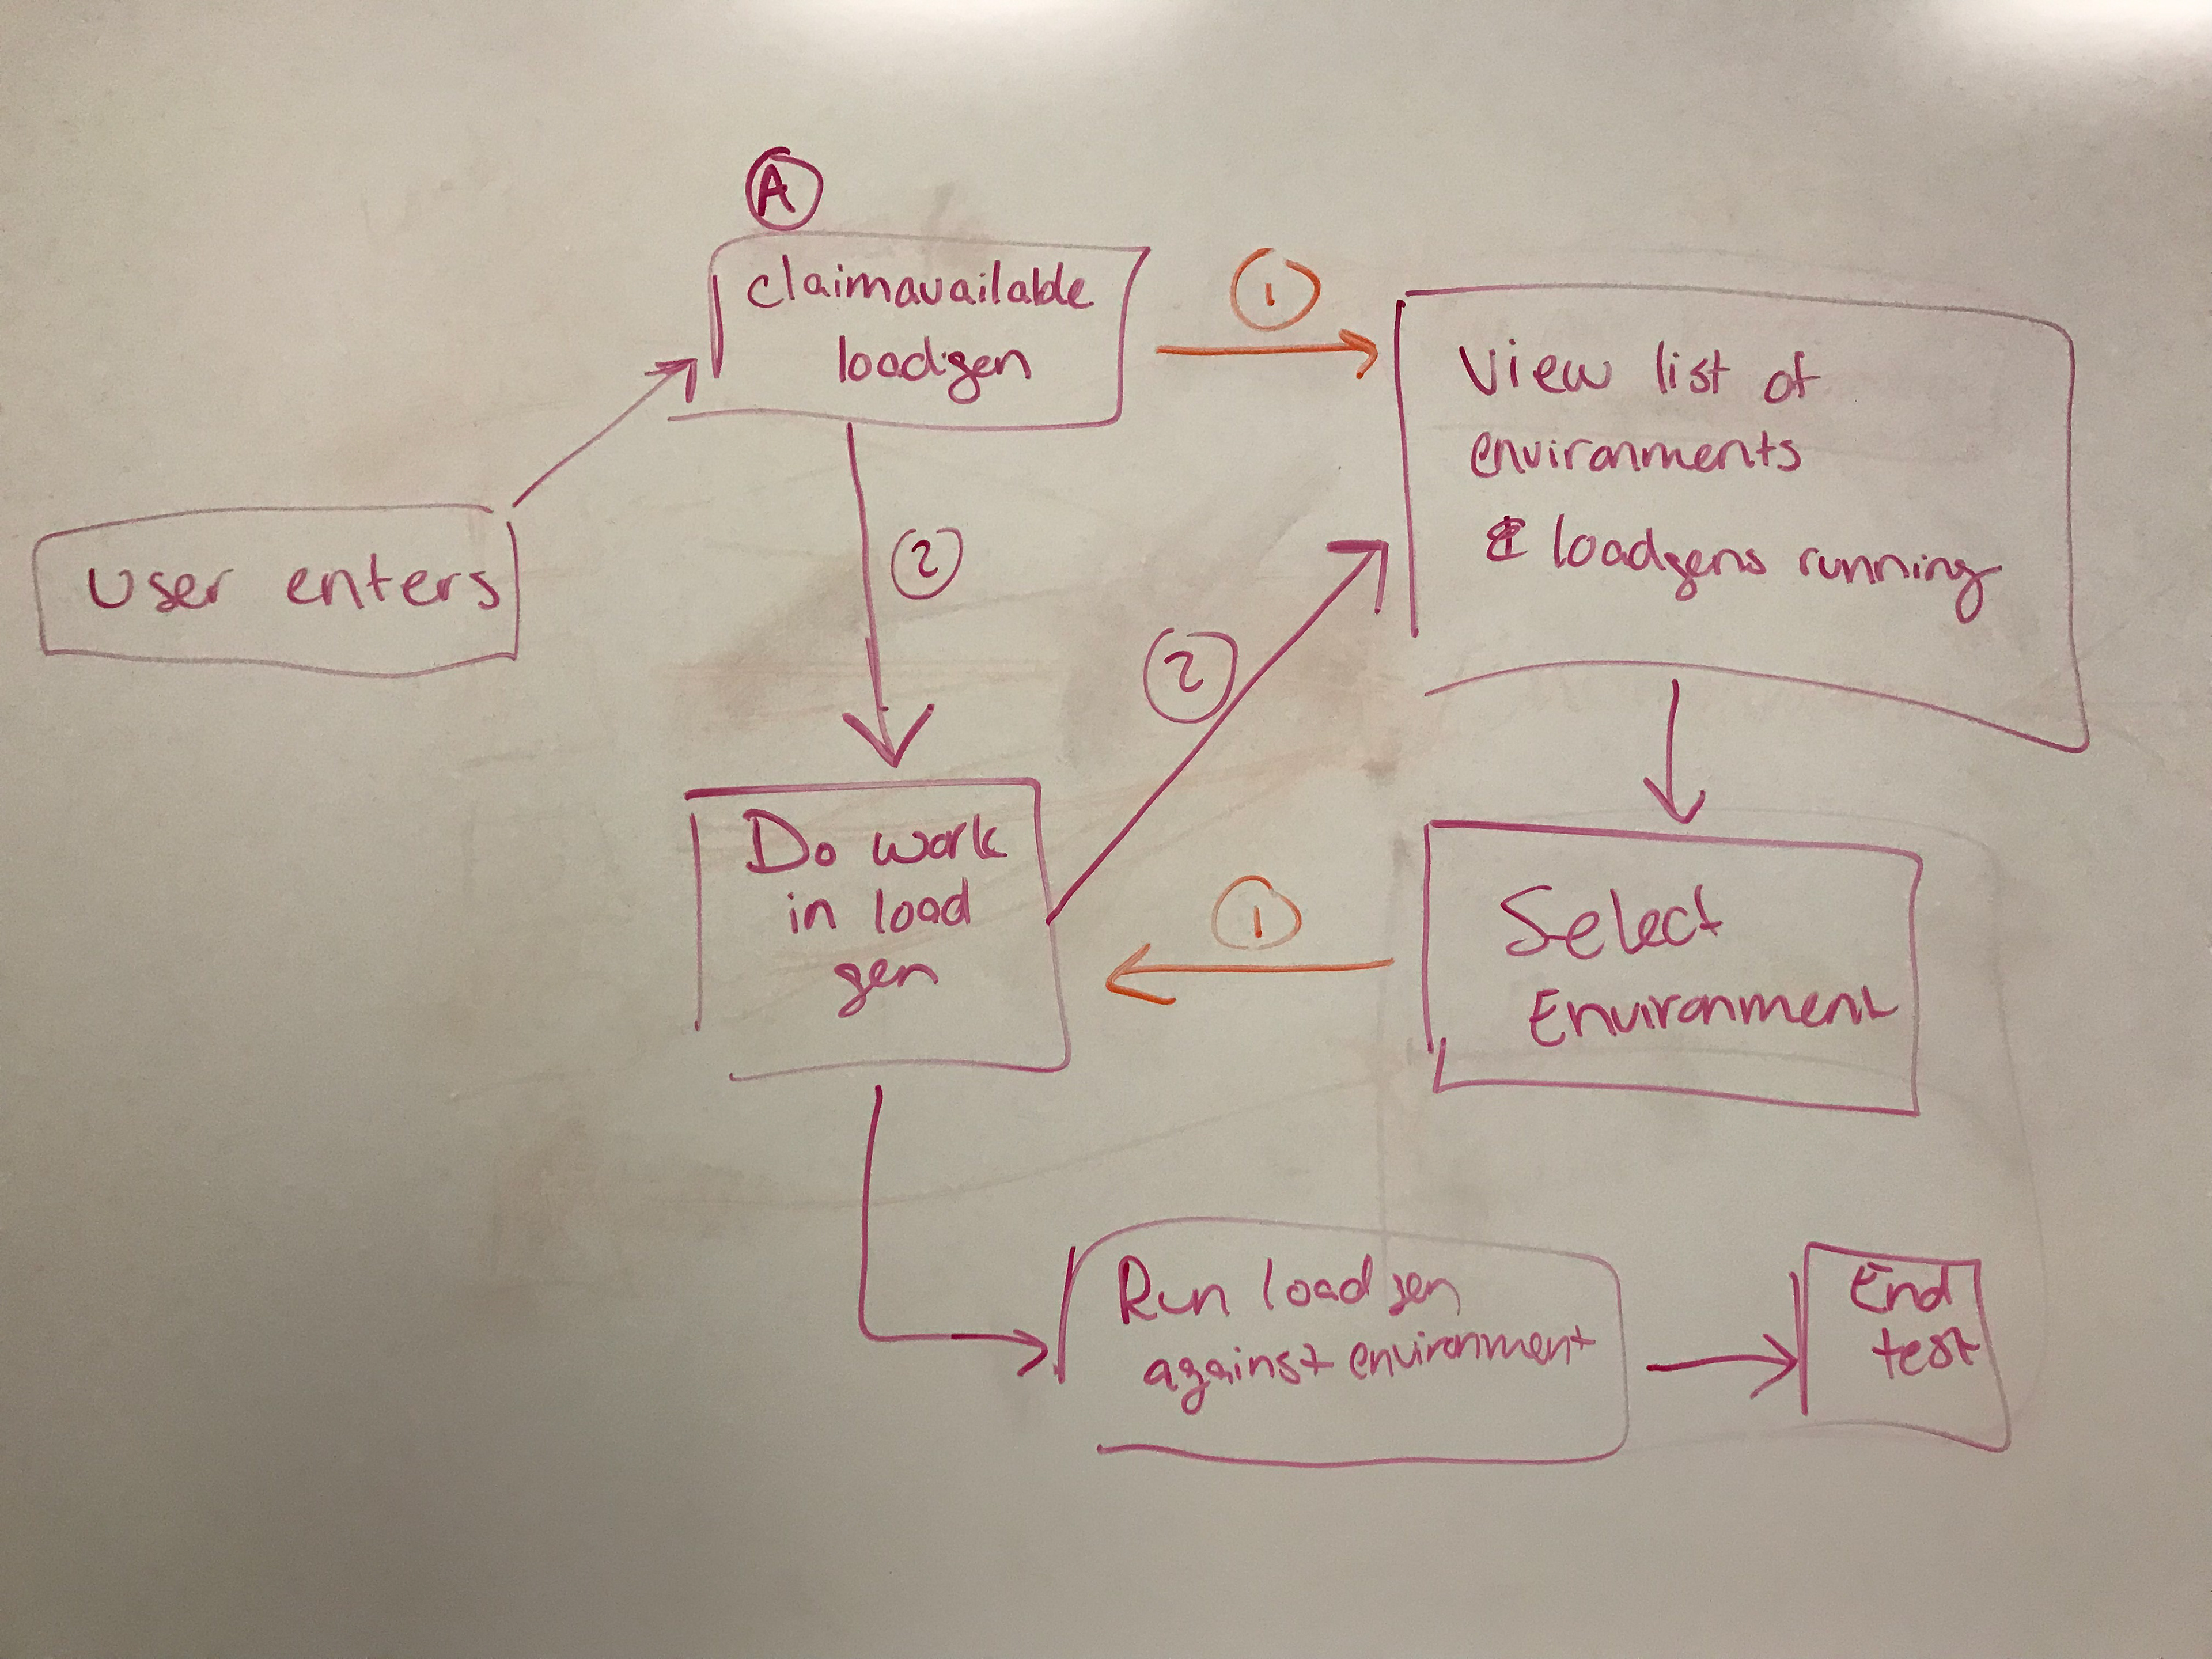 A
claimavailable
loadgen
1
View list of
environments
& loadgens running
User enters
2
2
Do work
in load
gen
1
Select
Environment
Run loadgen
against environment
End
test